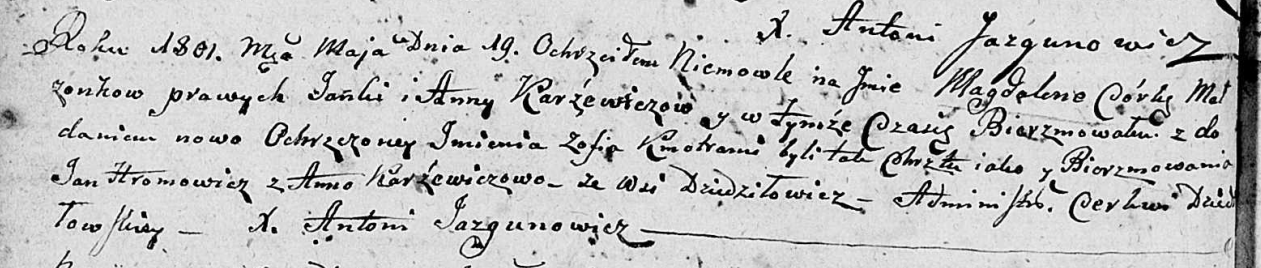 X. Antoni Jazgunowicz
Roku 1801. Mca Maja Dnia 19. Ochrzciłem Niemowle na Jmie Magdalene Córkę Mał
zonkow prawych Janki i Anny Karżewiczow y w tymże Czasie Bierzmowałem z do
daniem nowo Ochrzczoney Jmienia Zofia Kmotrami byli tak Chrztu iako y Bierzmowania
Jan Hromowicz z Anno Karżewiczowo – ze Wsi Dziedziłowicz – Administr. Cerkwi Dzied
łowskiey – X. Antoni Jazgunowicz